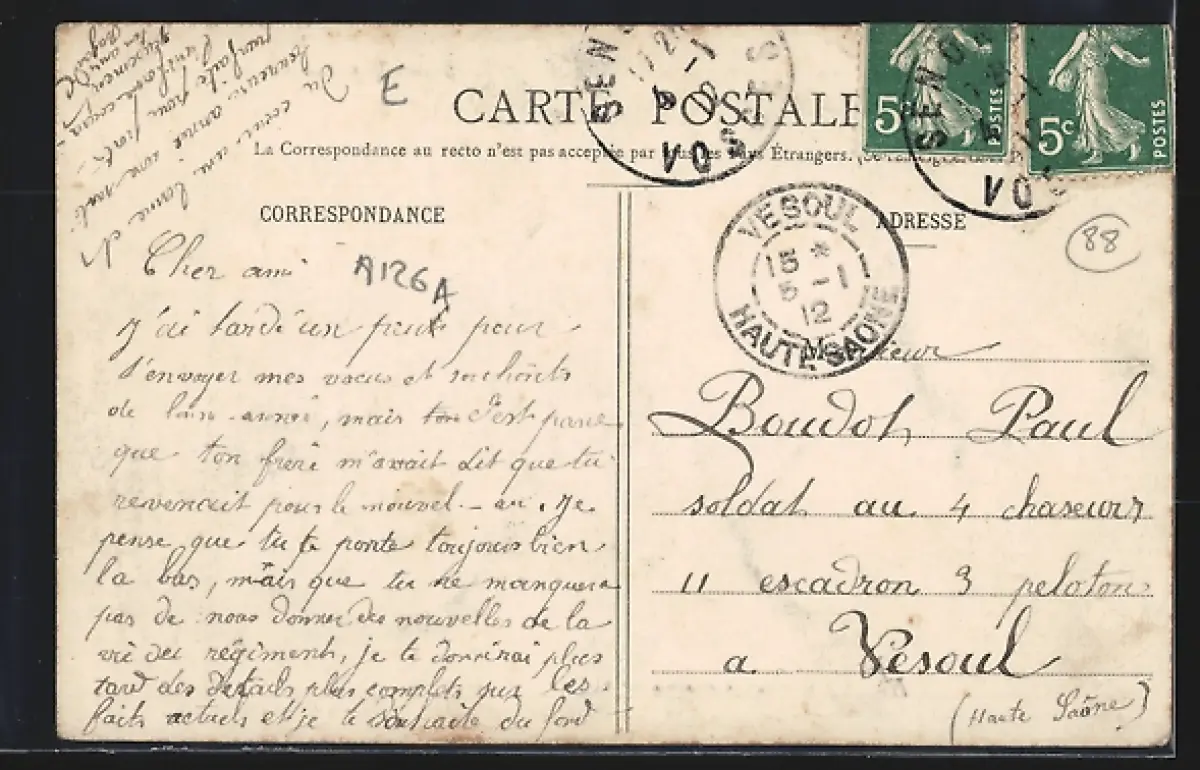 E
CARTE POSTALE
La Correspondance au recto n'est pas acceptée par tous les Pays Étrangers.
CORRESPONDANCE
ADRESSE
5c
POSTES
5c
POSTES
SENONES
VOSGES
SENONES
VOSGES
VESOUL
15 *
5 - 1
12
HAUTE SAONE
88
A126A
Cher ami
J'ai tardé un peut pour
t'envoyer mes vœux et souhaits
de année, mais c'est parce
que ton frère m'avait dit que tu
revenait pour le nouvel - an. Je
pense que tu te porte toujours bien
la bas, mais que tu ne manquera
pas de nous donner des nouvelles de la
vie des régiments, je te donnerai plus
tard des détails plus complets sur les
faits actuels et je te souhaite du fond
du cœur une bonne et
heureuse année
Monsieur
Boudot Paul
soldat au 4 chaseurs
11 escadron 3 peloton
a Vesoul
(Haute Saône)